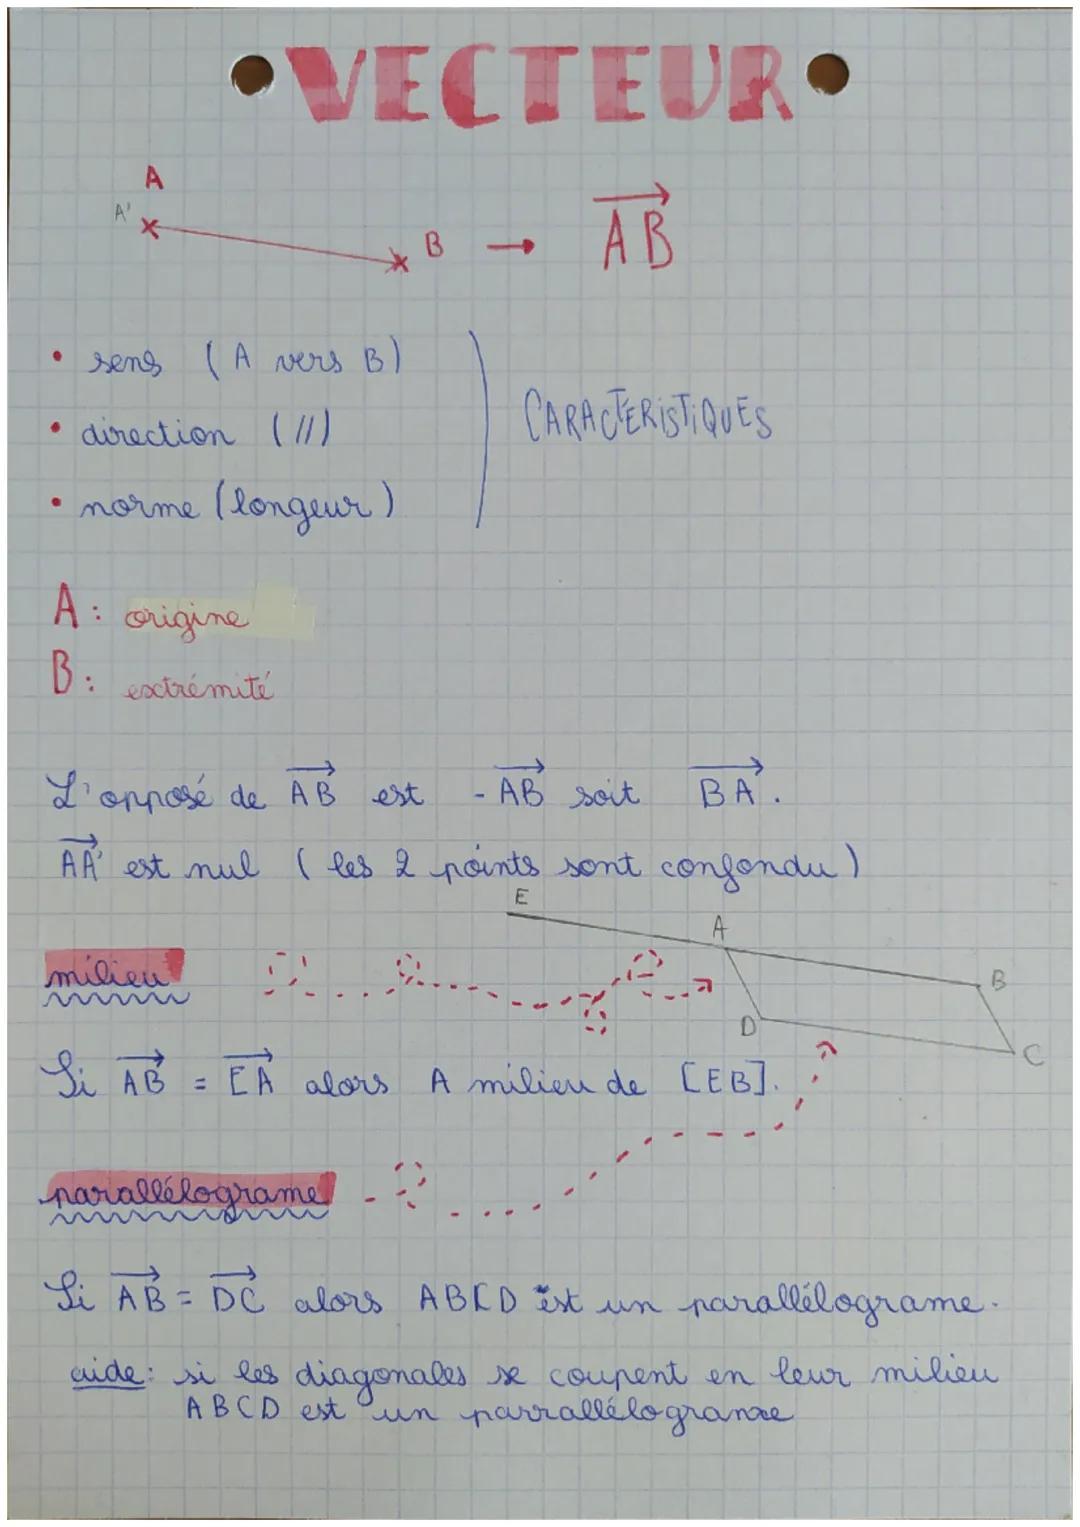 VECTEUR
A
A'
B → AB
• sens (A vers B)
• direction (//)
CARACTÉRISTIQUES
• norme (longeur)
A : origine
B : extrémité
L'opposé de AB est - AB soit BA.
AA' est nul (les 2 points sont confondu)
E
A
milieu
B
D
C
Si AB = EA alors A milieu de [EB].
parallélograme
Si AB = DC alors ABCD est un parallélograme.
aide : si les diagonales se coupent en leur milieu
ABCD est un parrallélograme